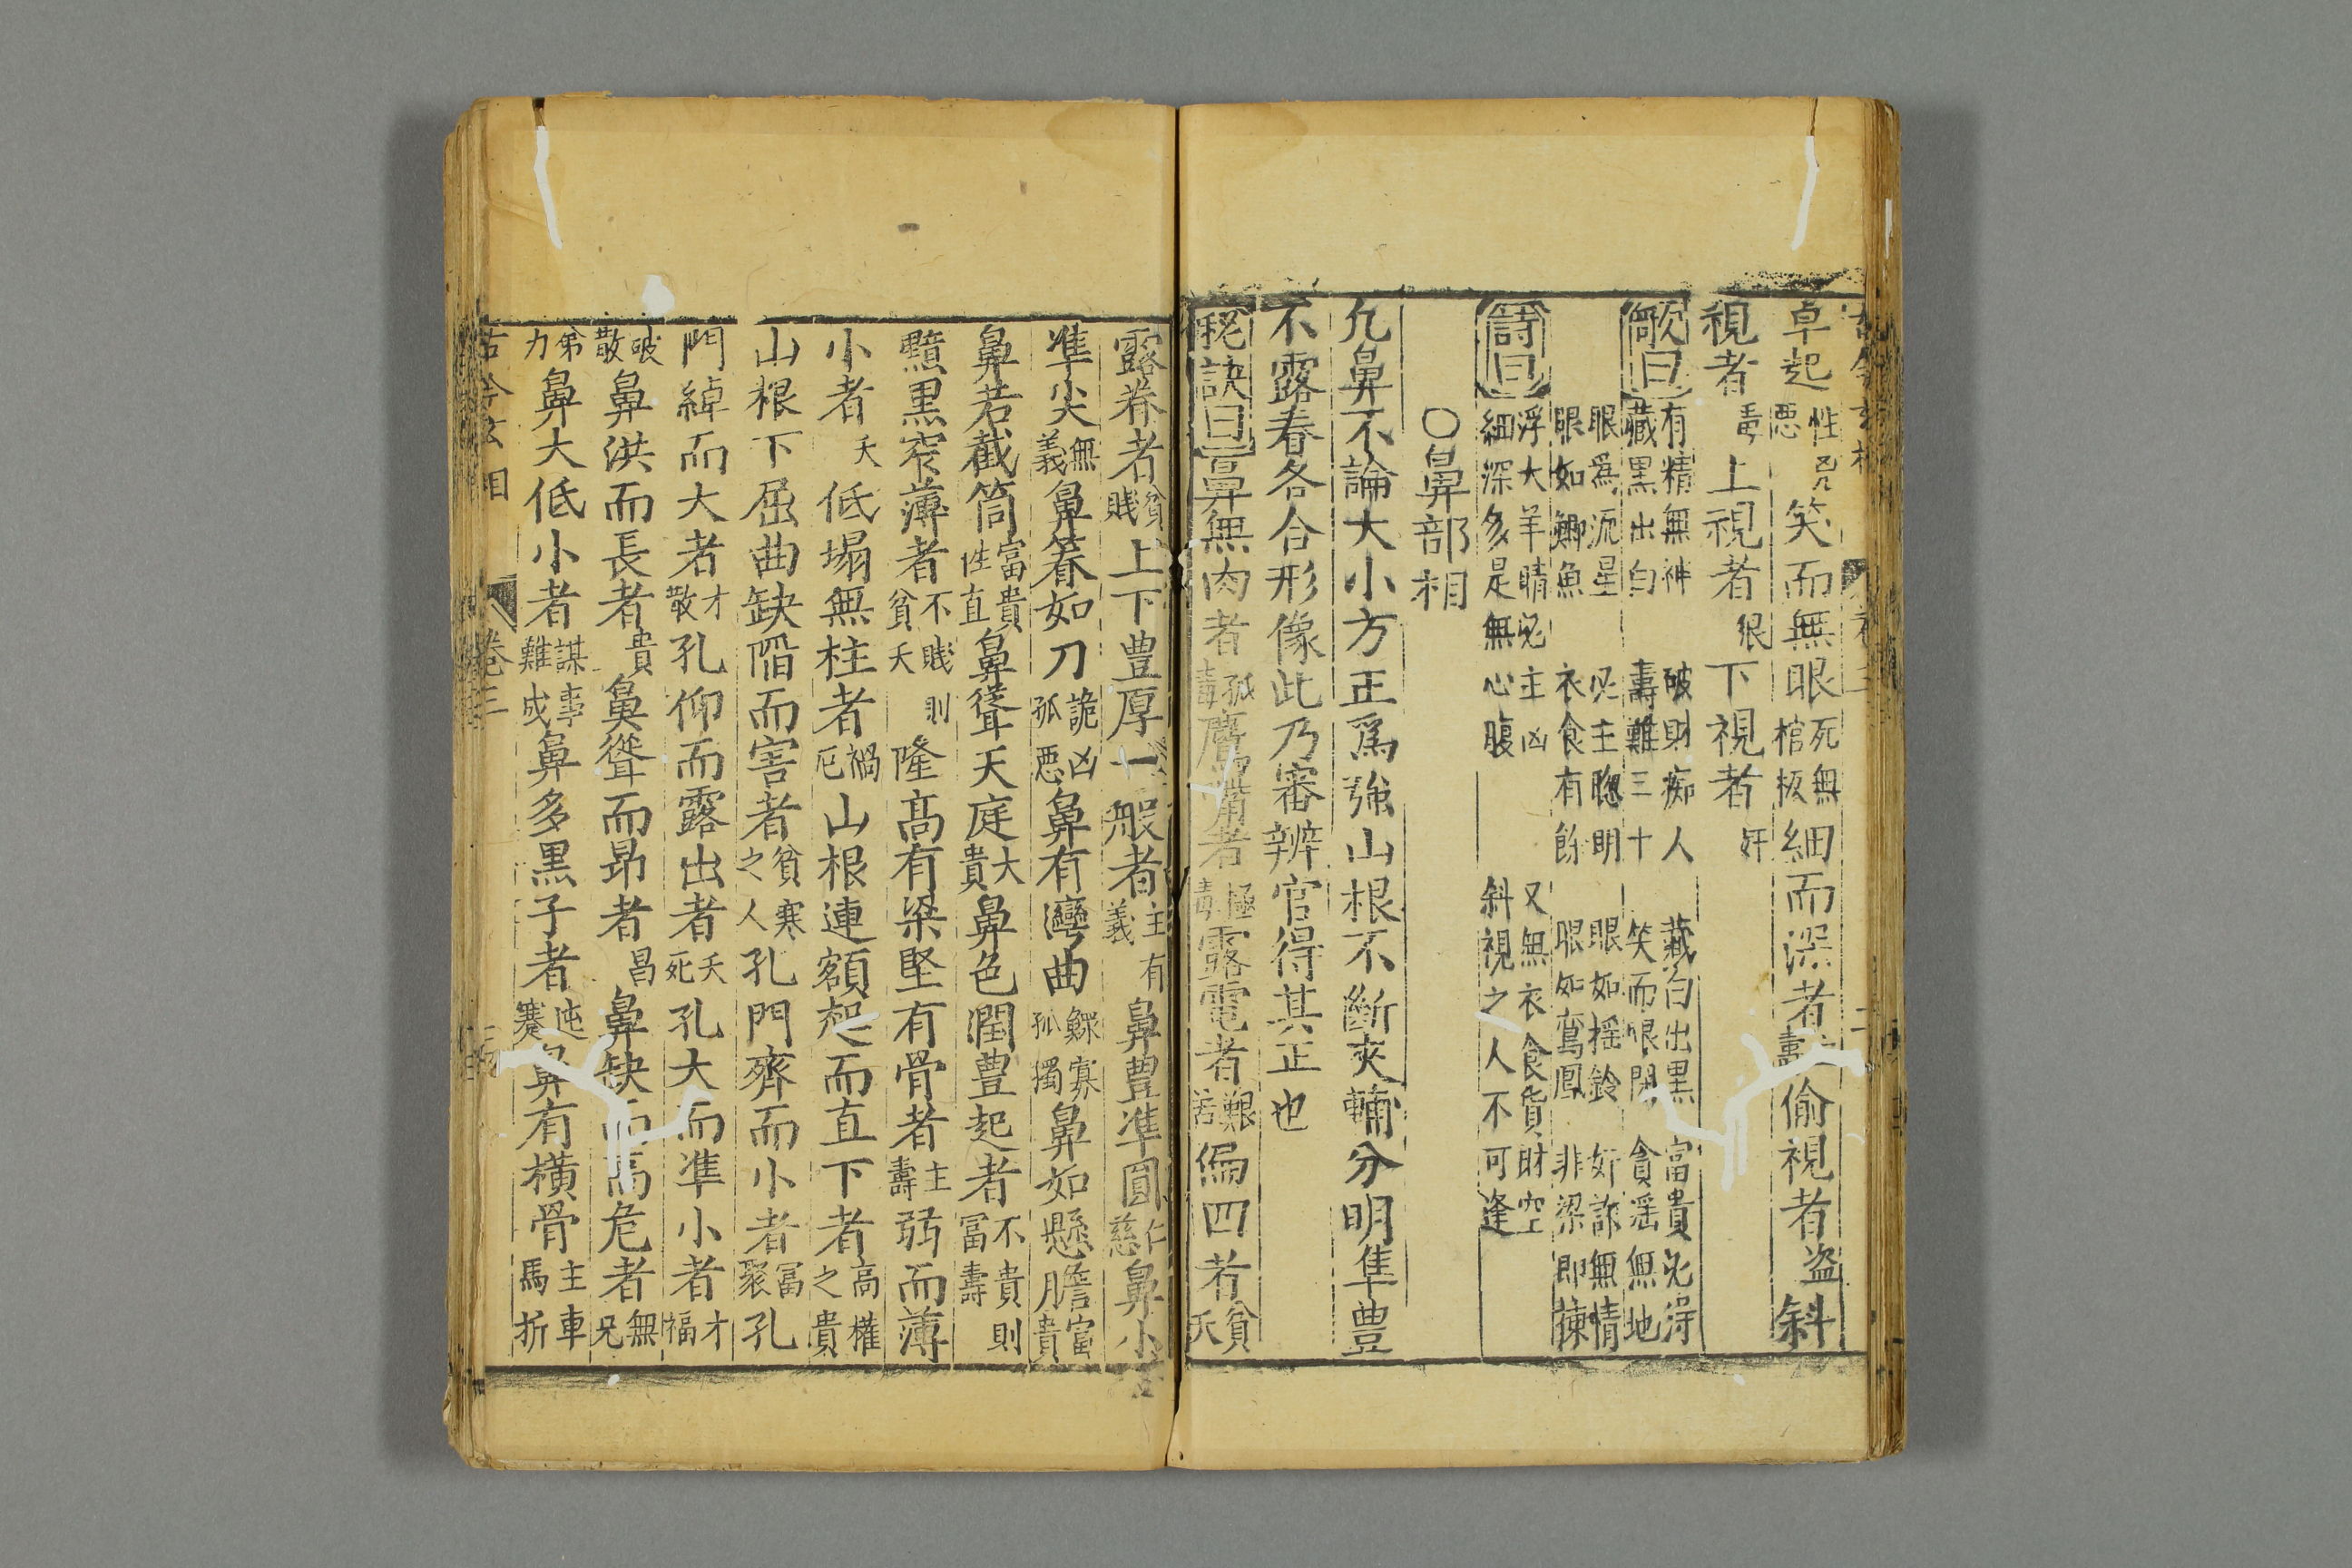 卓起性悪凶兇笑而無眼死無棺板細而深者壽偷視者盗斜
視者毒上視者狠下視者奸
歌曰有精無神藏黒出白破財痴人壽難三十藏白出黒笑而眼閉富貴必得貪滛無地
眼爲流星眼如鯽魚必主聰明衣食有餘眼如揺鈴眼如鸞鳳奸詐無情非梁即棟
詩曰浮大羊睛必主凶又無衣食貨財空細深多是無心腹斜視之人不可逢
○鼻部相
凢鼻不論大小方正爲強山根不斷夾輔分明隼豊
不露春各合形像此乃審辨官得其正也
秘訣曰鼻無肉者孤毒鷹觜者極毒露竃者艱苦偏凹者貧夭
露脊者貧賎上下豊厚一般者主有義鼻豊準圓仁慈鼻小
準尖無義鼻脊如刀詭凶孤悪鼻有灣曲鰥寡孤獨鼻如懸膽富貴
鼻若截筒富貴性直鼻聳天庭大貴鼻色潤豊起者不貴則冨壽
黯黒窄薄者不賎則貧夭隆髙有梁堅有骨者主壽弱而薄
小者夭低塌無柱者禍厄山根連額起而直下者高權之貴
山根下屈曲缺陷而害者貧寒之人孔門齊而小者冨聚孔
門綽而大者才散孔仰而露出者夭死孔大而準小者才福
破散鼻洪而長者貴鼻聳而昂者昌鼻缺而高危者無兄
弟力鼻大低小者謀事難成鼻多黒子者迍蹇鼻有横骨主車馬折
古今玄相 卷三